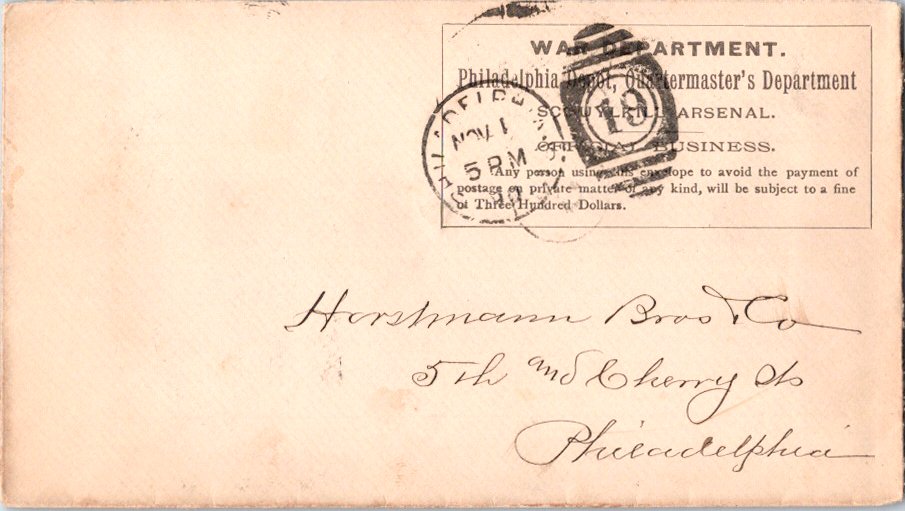 WAR DEPARTMENT.
Philadelphia Depot, Quartermaster's Department
SCHUYLKILL ARSENAL.
OFFICIAL BUSINESS.
Any person using this envelope to avoid the payment of
postage on private matter of any kind, will be subject to a fine
of Three Hundred Dollars.
PHILADELPHIA
NOV 1
5 PM
19
Horstmann Bros & Co
5th and Cherry Sts
Philadelphia